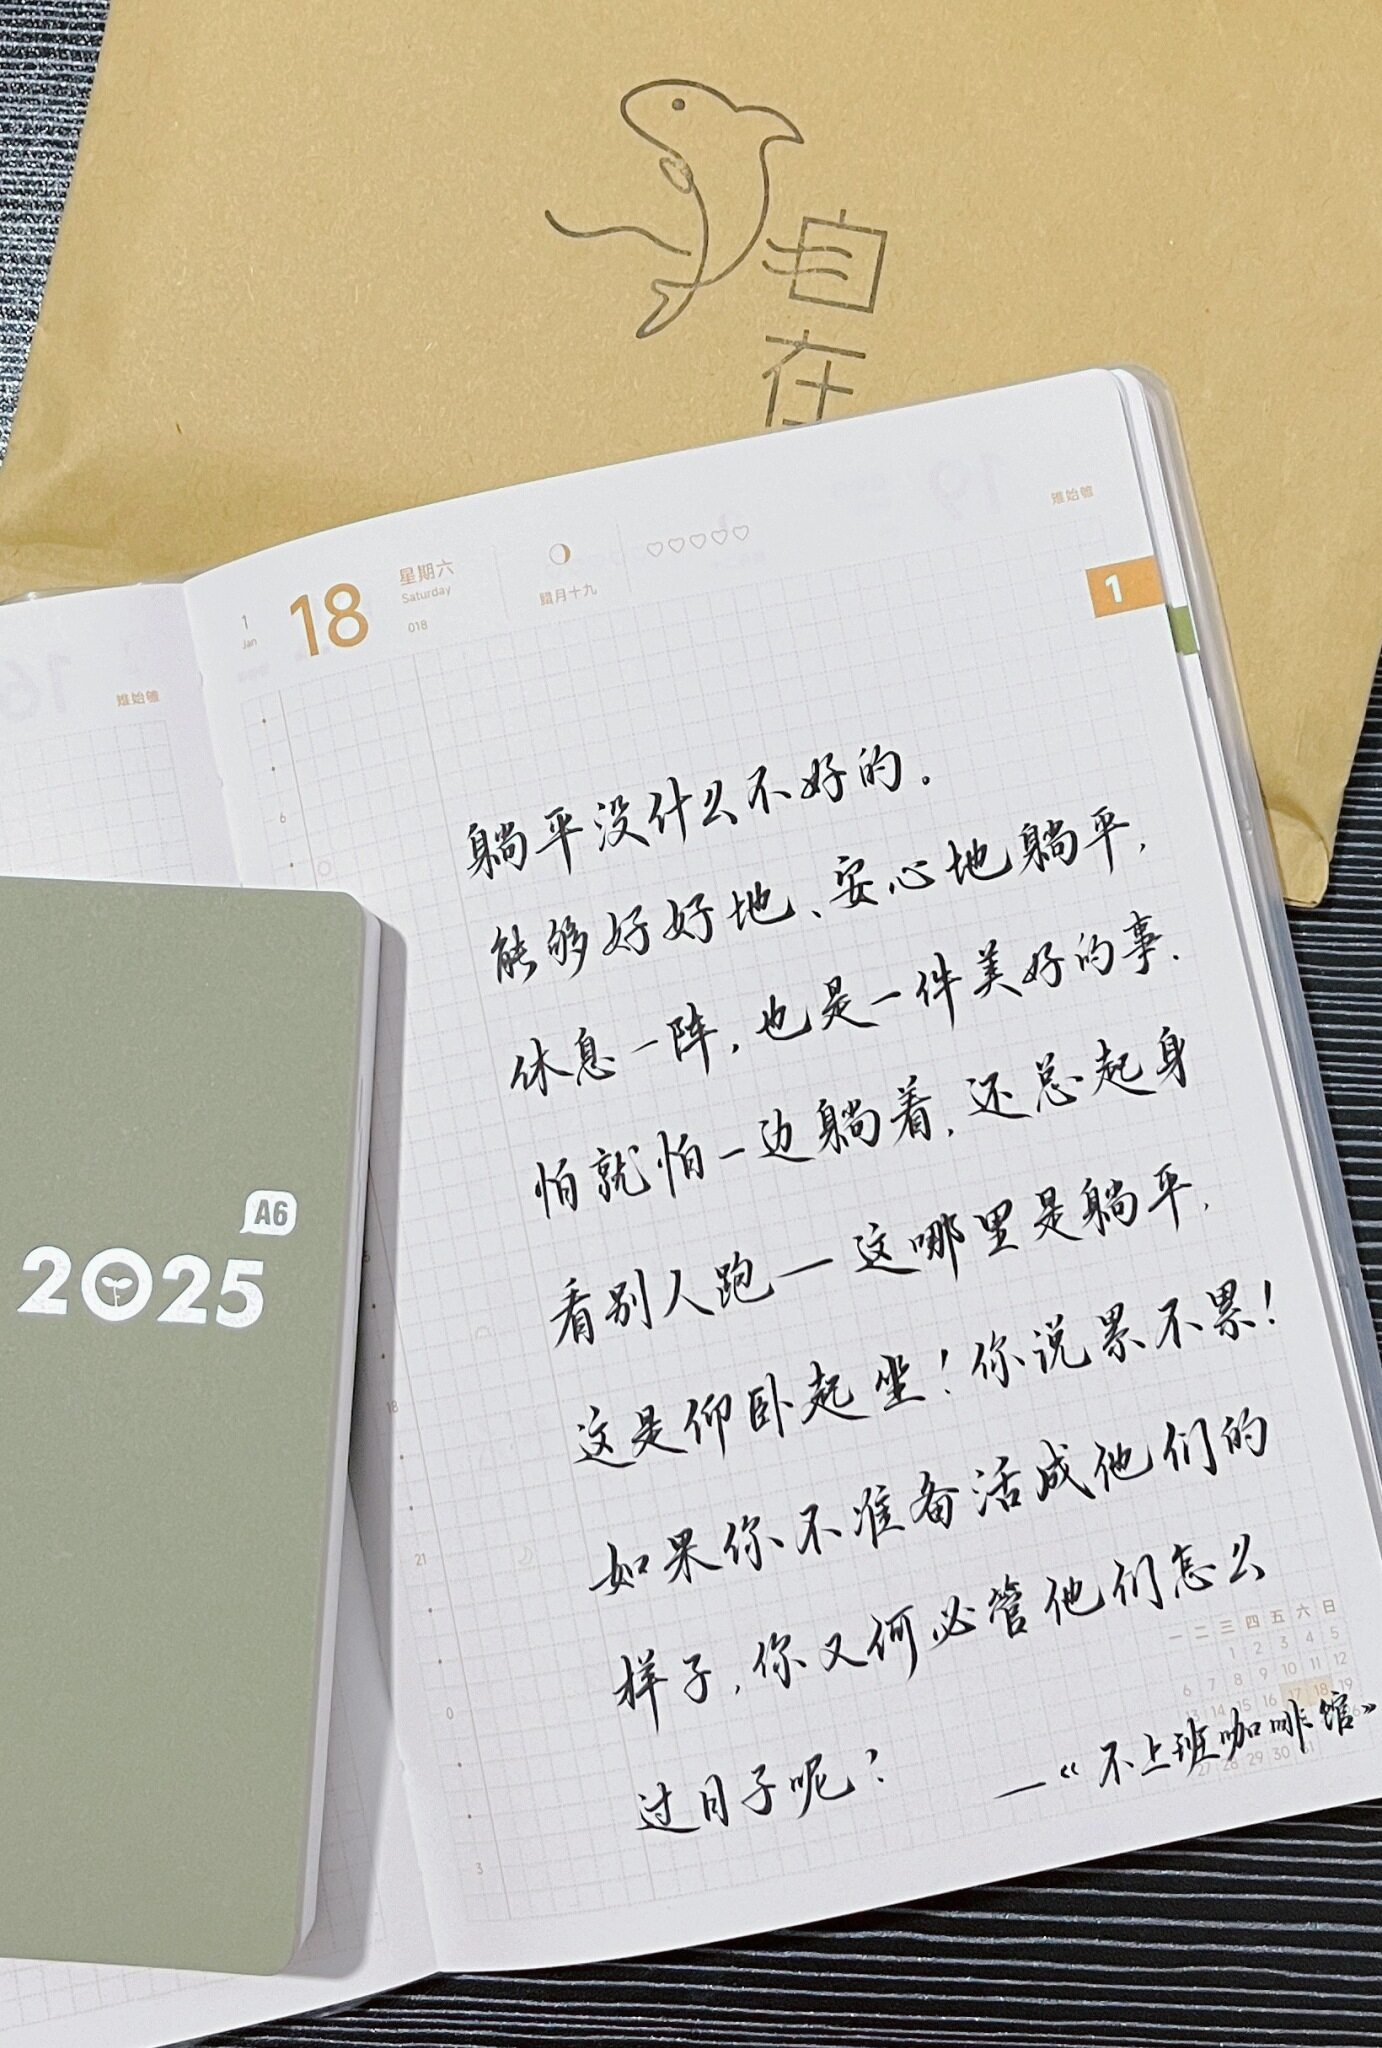 自
在
1
Jan
18
星期六
Saturday
018
臘月十九
雉始雊
1
雉始雊
6
18
21
0
3
躺平没什么不好的。
能够好好地、安心地躺平,
休息一阵,也是一件美好的事.
怕就怕一边躺着,还总起身
看别人跑——这哪里是躺平,
这是仰卧起坐!你说累不累!
如果你不准备活成他们的
样子,你又何必管他们怎么
过日子呢?
—《不上班咖啡馆》
一 二 三 四 五 六 日
1 2 3 4 5
6 7 8 9 10 11 12
13 14 15 16 17 18 19
27 28 29 30 31
A6
2025